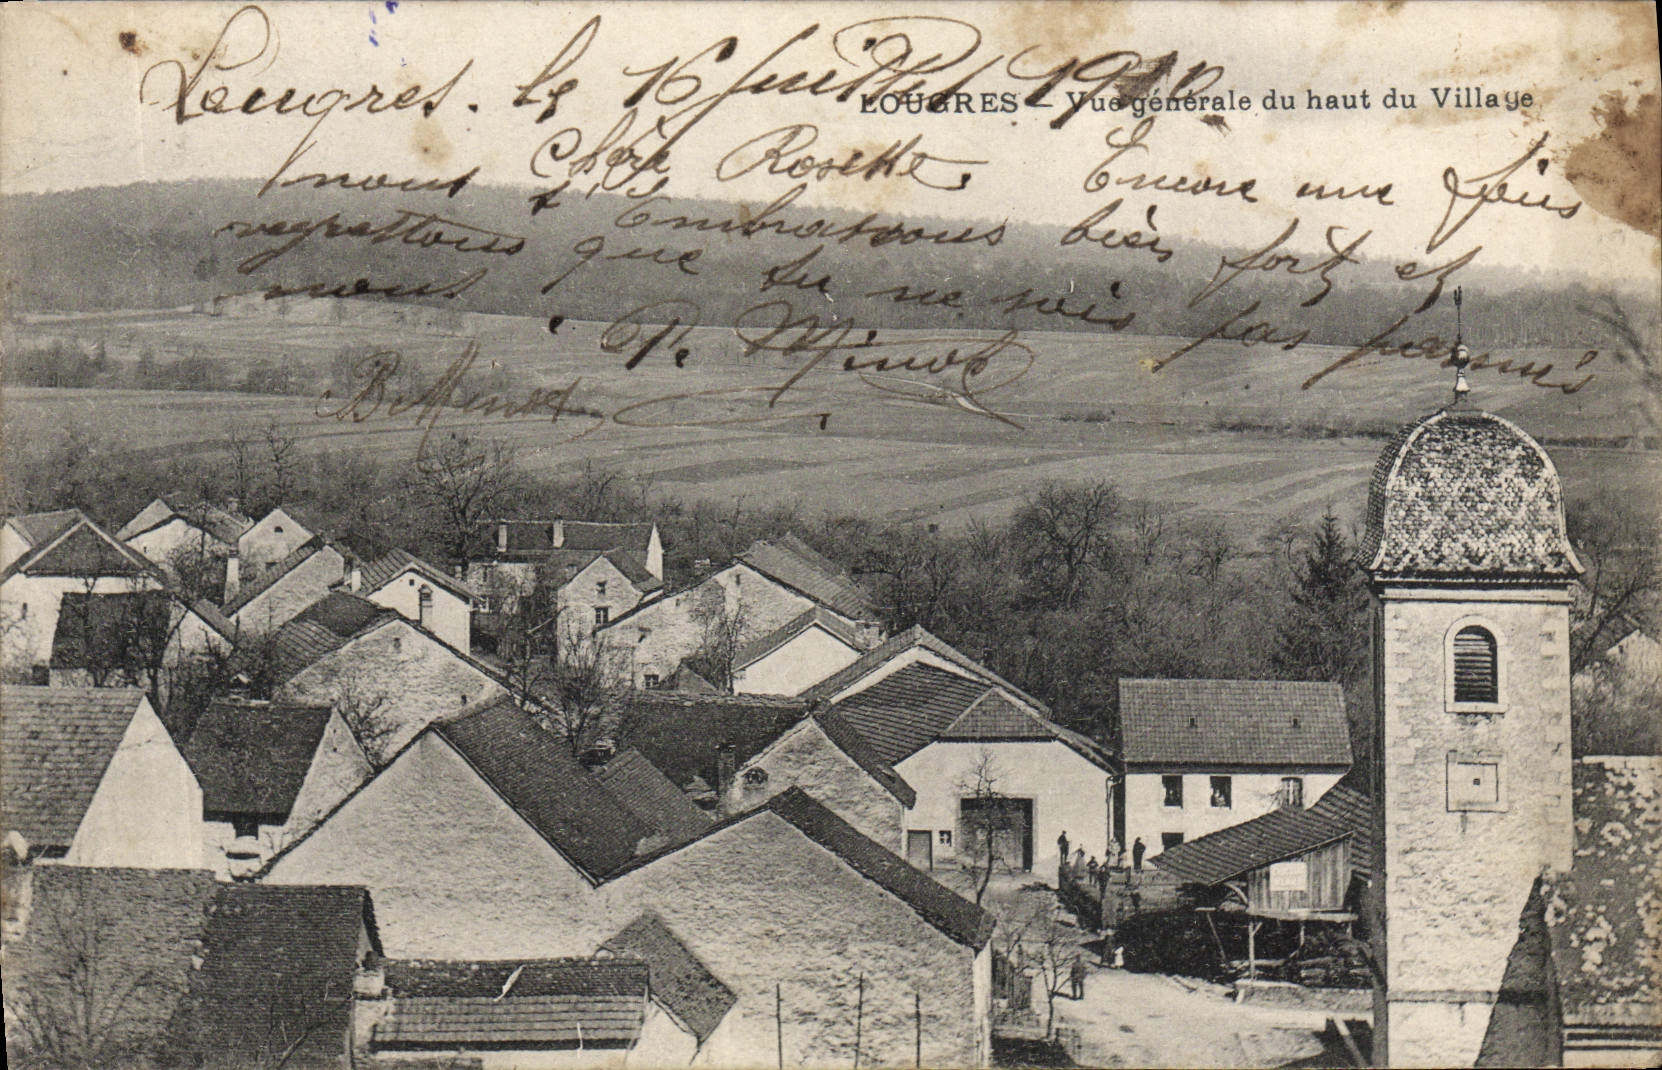 Lougres. le 16 Juillet 1910
LOUGRES — Vue générale du haut du Village
Chère Rosette. Encore une fois
nous t'Embrassons bien fort et
regrettons que tu ne sois pas parmis
nous. P. Minot
B Minot